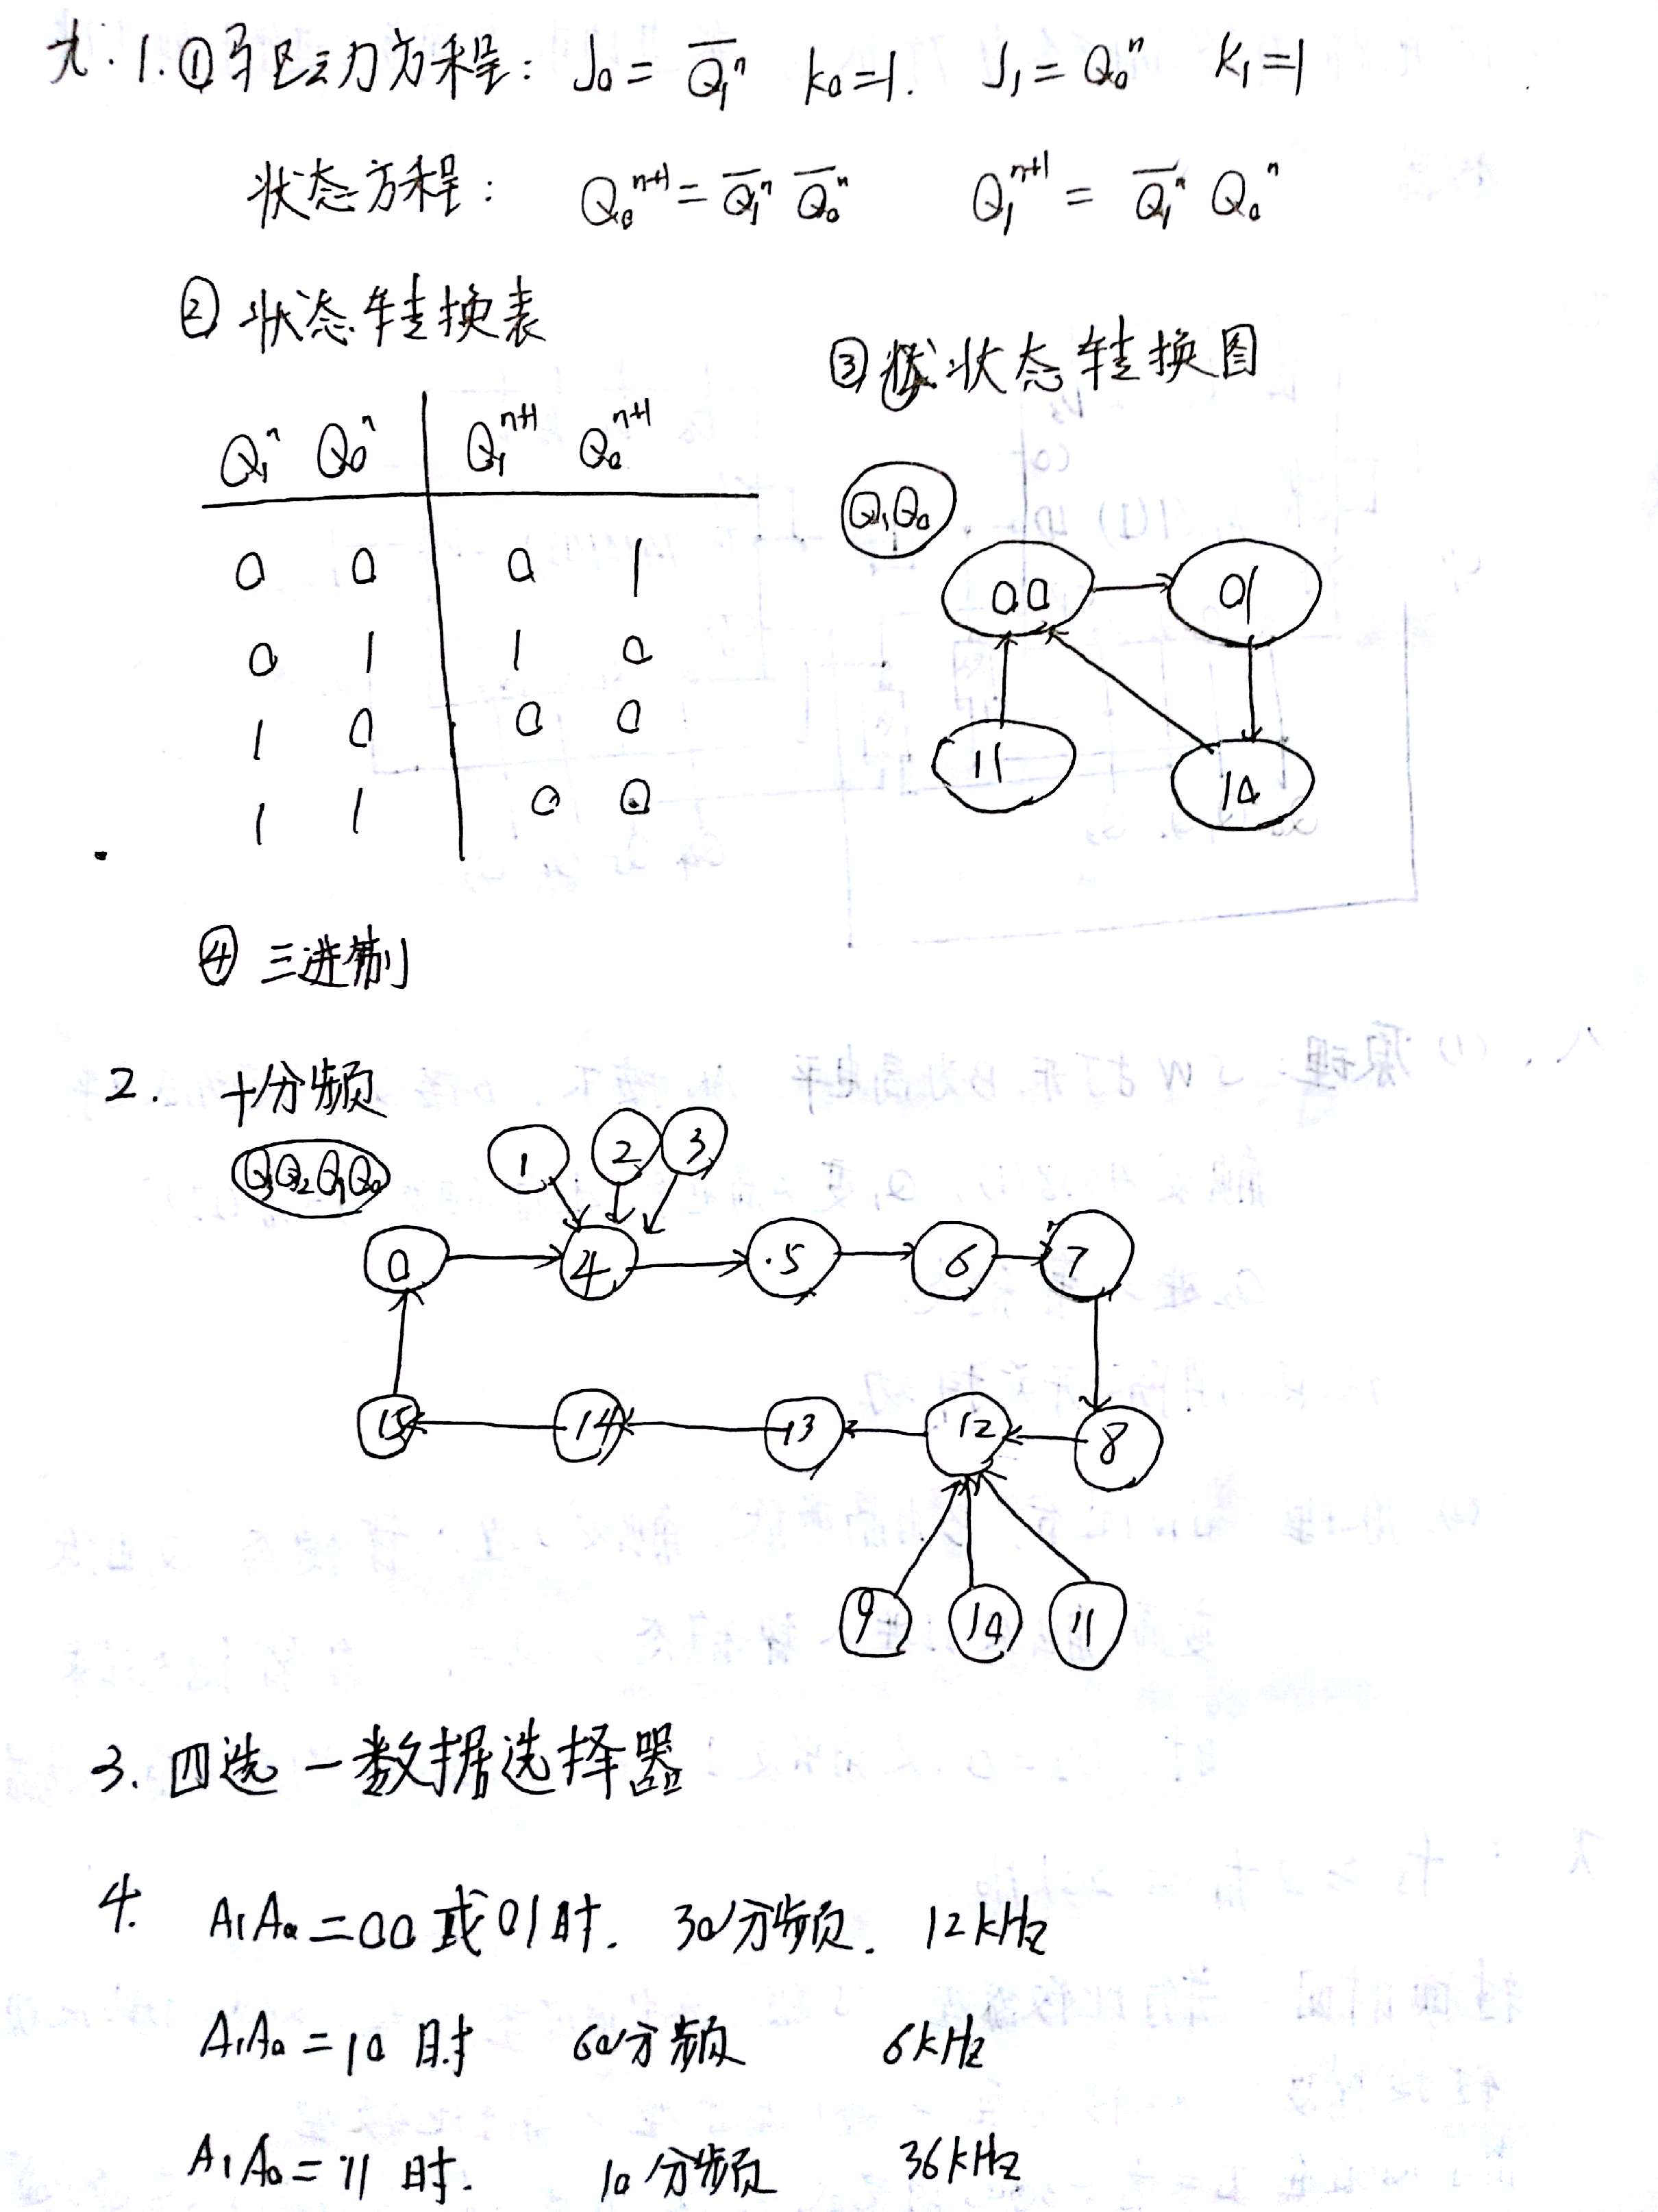 九. 1. ① 驱动方程: J₀ = Q̅₁ⁿ K₀=1. J₁ = Q₀ⁿ K₁=1
状态方程: Q₀ⁿ⁺¹ = Q̅₁ⁿ Q̅₀ⁿ Q₁ⁿ⁺¹ = Q̅₁ⁿ Q₀ⁿ
② 状态转换表
Q₁ⁿ Q₀ⁿ Q₁ⁿ⁺¹ Q₀ⁿ⁺¹
0 0 0 1
0 1 1 0
1 0 0 0
1 1 0 0
③ 状态转换图
Q₁Q₀
00 01
11 10
④ 三进制
2. 十分频
Q₃Q₂Q₁Q₀
1 2 3
0 4 5 6 7
15 14 13 12 8
9 10 11
3. 四选一数据选择器
4. A₁A₀=00或01时. 30分频. 12kHz
A₁A₀=10时 60分频 6kHz
A₁A₀=11时. 10分频 36kHz